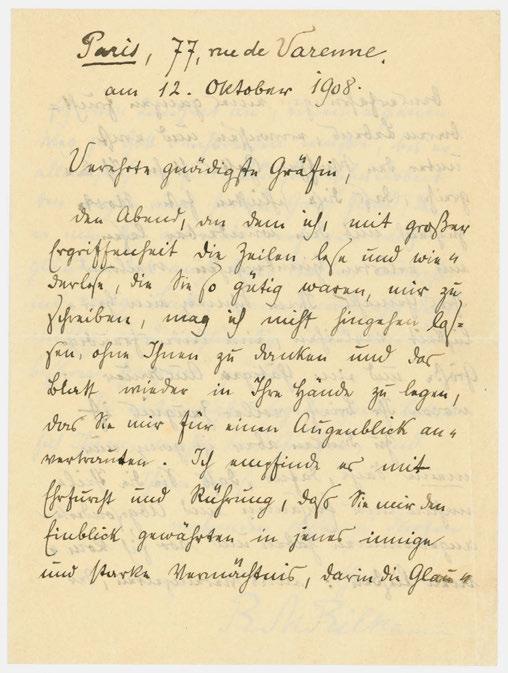 Paris, 77, rue de Varenne.
am 12. Oktober 1908.
Verehrte gnädigste Gräfin,
den Abend, an dem ich, mit großer
Ergriffenheit die Zeilen lese und wie=
derlese, die Sie so gütig waren, mir zu
schreiben, mag ich nicht hingehen las=
sen, ohne Ihnen zu danken und das
Blatt wieder in Ihre Hände zu legen,
das Sie mir für einen Augenblick an=
vertrauten. Ich empfinde es mit
Ehrfurcht und Rührung, dass Sie mir den
Einblick gewährten in jenes innige
und starke Vermächtnis, darin die Glau=